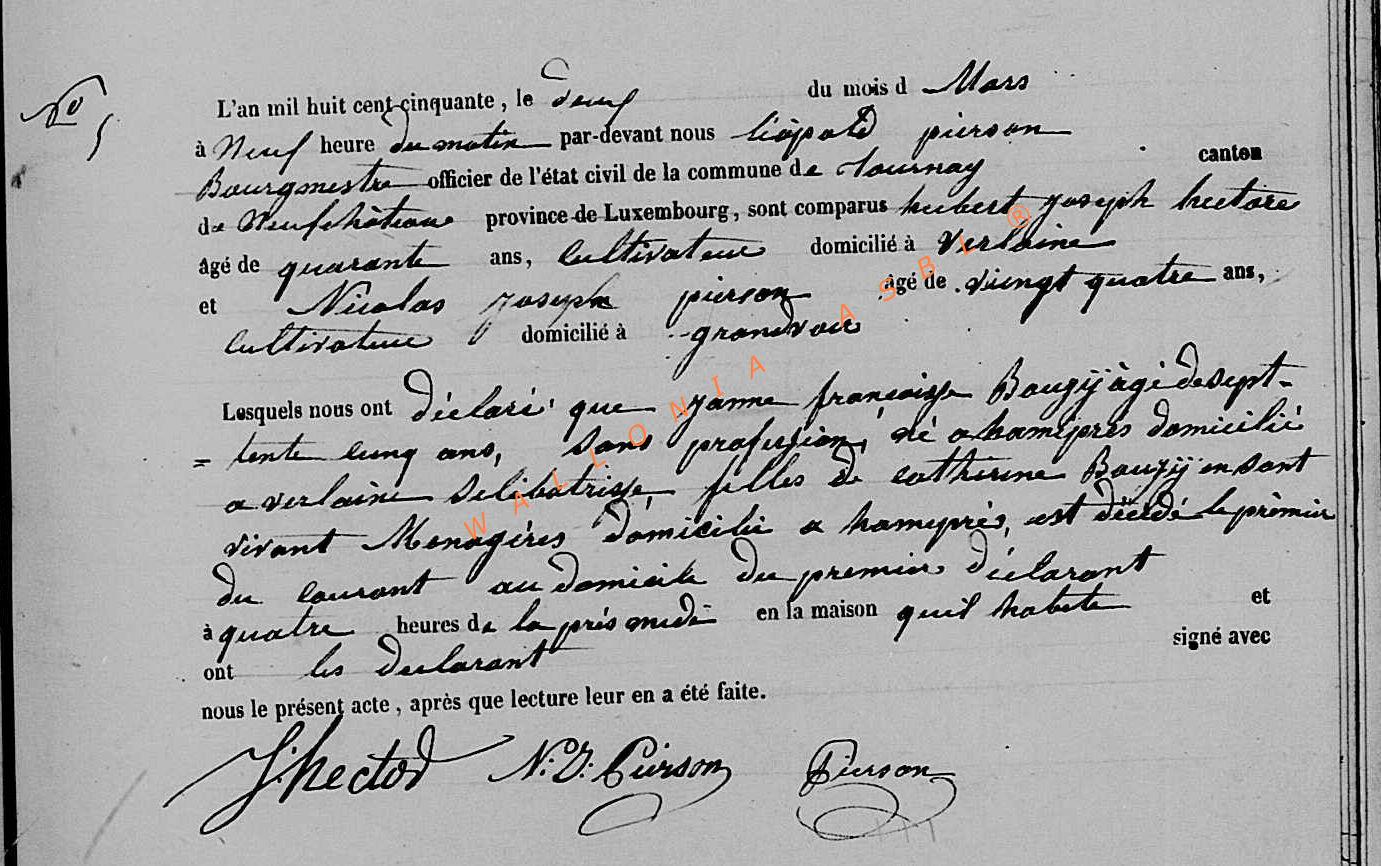 No 5
L'an mil huit cent cinquante, le deux du mois d Mars
à Neuf heure du matin par-devant nous léopold pierson
Bourgmestre officier de l'état civil de la commune de tournay canton
de Neufchâteau province de Luxembourg, sont comparus hubert joseph hectore
âgé de quarante ans, Cultivateur domicilié à Verlaine
et Nicolas joseph pierson âgé de vingt quatre ans,
Cultivateur domicilié à grandvoir
Lesquels nous ont déclaré que janne françoisse Bougÿ âgé de sept-
= tente cinq ans, sans profession, né a hamipré domicilié
a verlaine Selibatrisse, filles de catherine Bougÿ en sont
vivant Menagérés domicilié a hamipré, est décédé le prémier
du courant au domicile du premier déclarant
à quatre heures de la prés midi en la maison quil habite et
ont les declarant signé avec
nous le présent acte, après que lecture leur en a été faite.
J. hector N. J. Pierson Pierson
WALLONIA ASBL ®